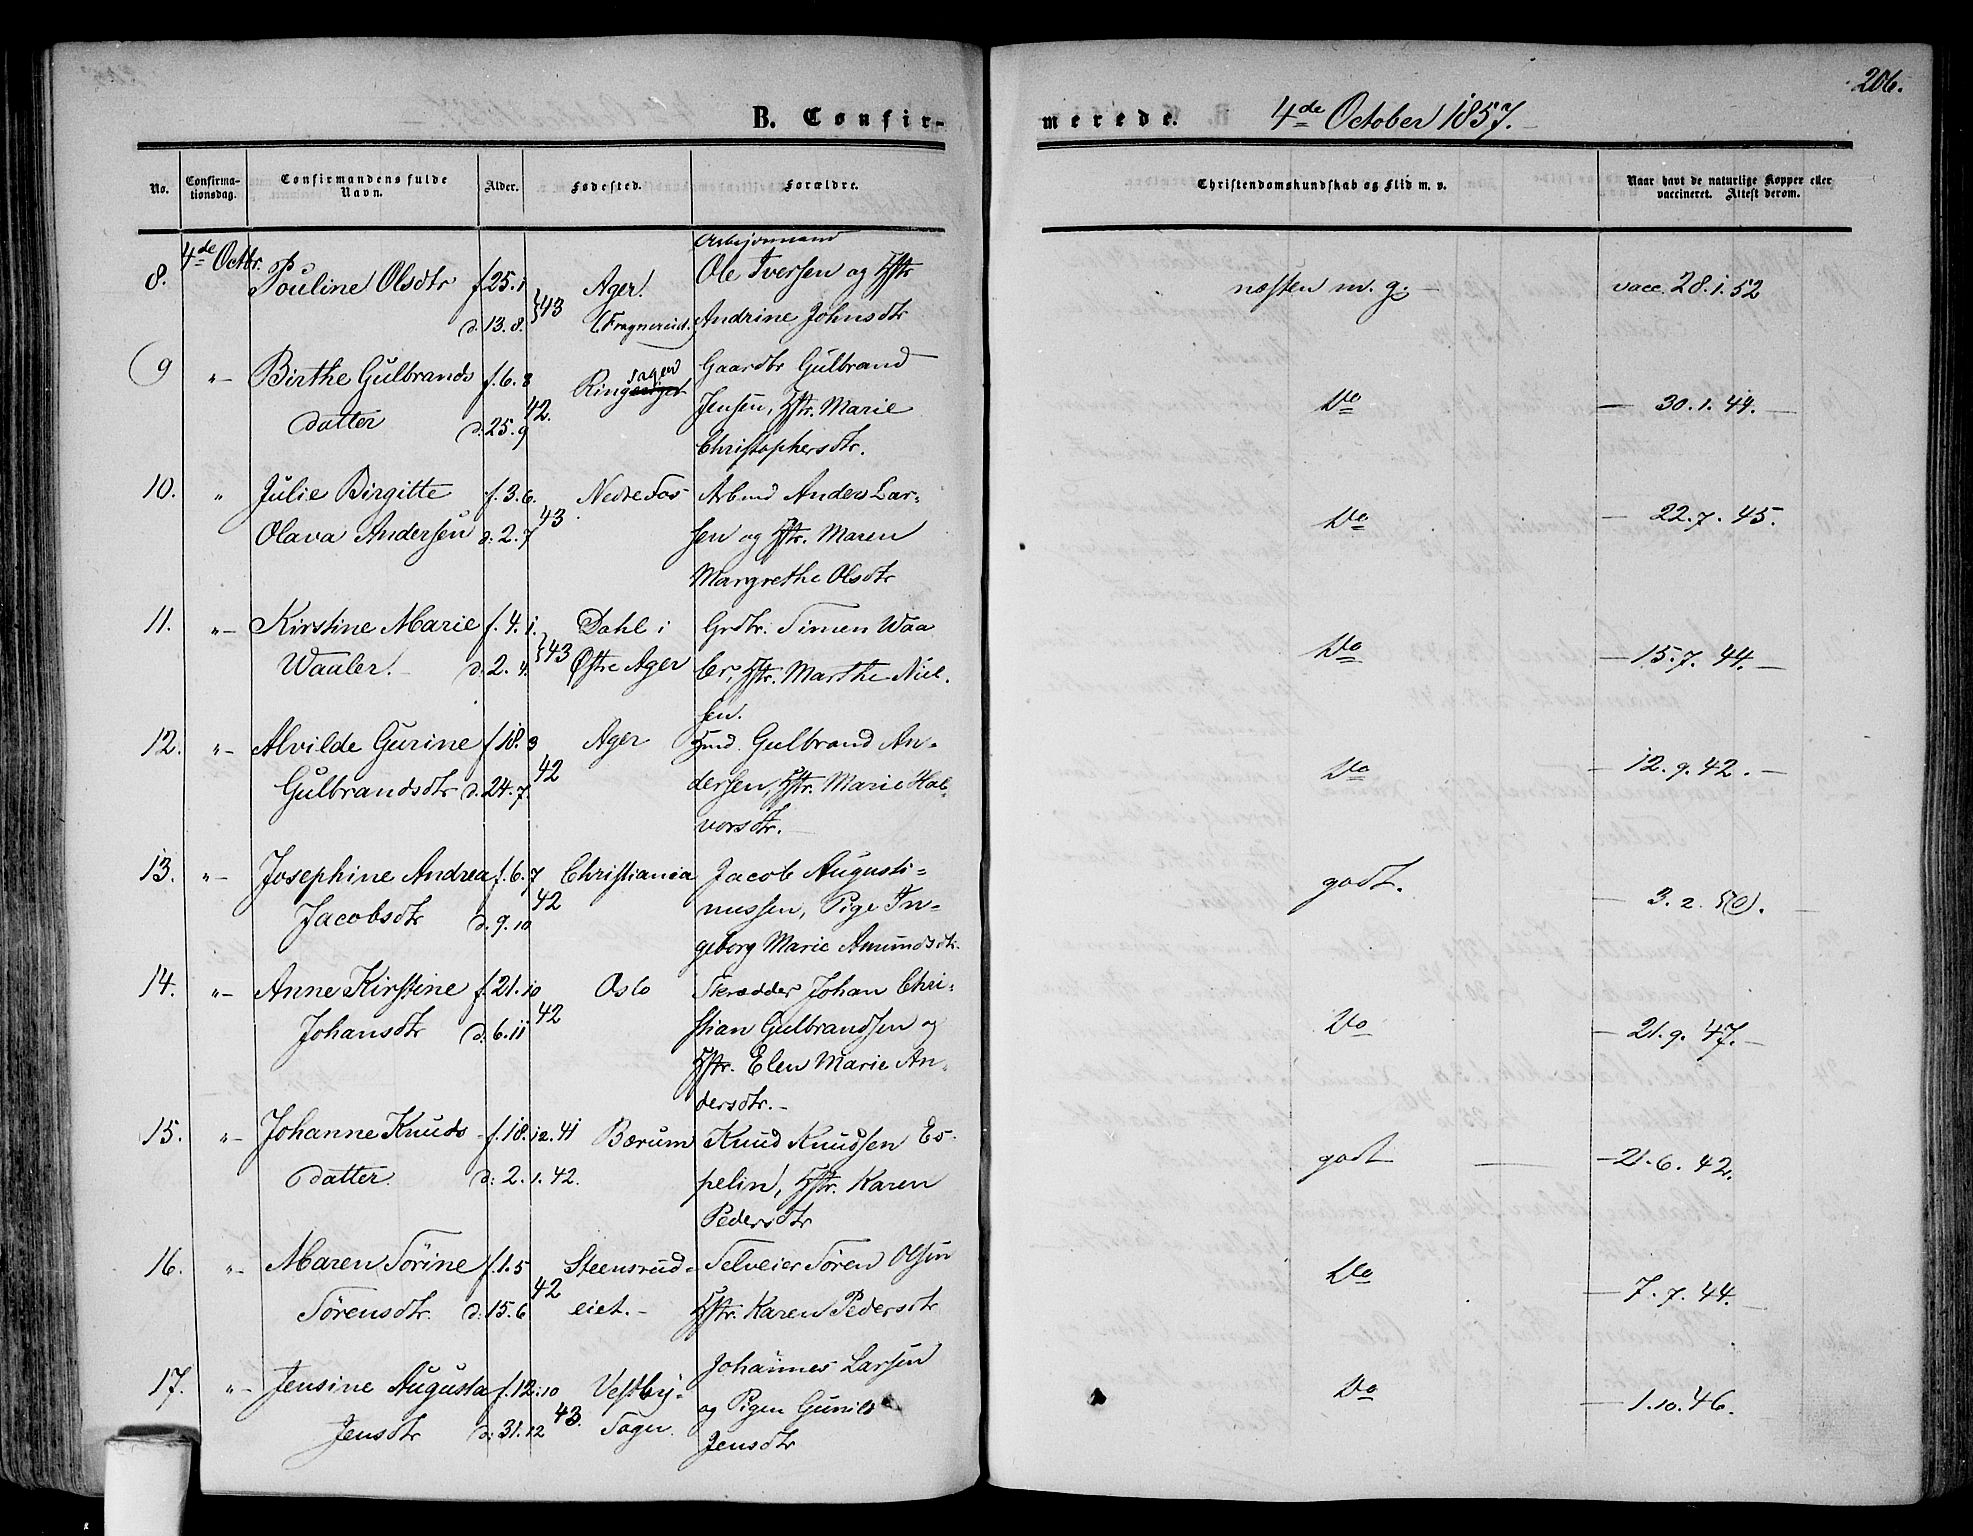 206.
B. Confir-
merede.
4de October 1857.
No.
Confirma-
tionsdag.
Confirmandens fulde
Navn.
Alder.
Fødested.
Forældre.
Christendomskundskab og Flid m. v.
Naar havt de naturlige Kopper eller
vaccineret. Attest derom.
4de Octbr.
8. Pouline Olsdtr f. 25. 1 Ager. Arbejdsmand
Ole Iversen og Hstr
d. 13. 8. 43 Andrine Johnsdtr
næsten m. g. vacc. 28. 1. 52
9 "- Birthe Gulbrands f. 6. 8 Ringsager Gaardbr Gulbrand
datter d. 25. 9 42. Jensen, Hstr. Marie
Christophersdtr.
Do — 30. 1. 44. —
10. " Julie Birgitte f. 3. 6. Nedre Fos Arbmd Anders Lar-
Olava Andersen d. 2. 7 43 sen og Hstr. Maren
Margrethe Olsdtr
Do — 22. 7. 45.
11. "- Kirstine Marie f. 4. 1. Dahl i Grdbr. Simen Waa
Waaler. d. 2. 4. 43 Østre Ager ler, Hstr. Marthe Niel-
sen.
Do — 15. 7. 44. —
12. "- Alvilde Gurine f. 18. 3 Ager Hmd. Gulbrand An-
Gulbrandsdtr d. 24. 7. 42 dersen, Hstr. Marie Hal-
vorsdtr. —
Do — 12. 9. 42. —
13. "- Josephine Andrea f. 6. 7 Christiania Jacob Augusti-
Jacobsdtr d. 9. 10 42 nussen, Pige In-
geborg Marie Amundsdtr.
godt. — 3. 2. 50. —
14. "- Anne Kirstine f. 21. 10 Oslo Skrædder Johan Chri-
Johansdtr d. 6. 11 42 stian Gulbrandsen og
Hstr. Elen Marie An-
dersdtr. —
Do — 21. 9. 47. —
15. "- Johanne Knuds f. 18. 12. 41 Bærum Knud Knudsen Es-
datter. d. 2. 1. 42. pelin, Hstr. Karen
Pedersdtr
godt — 21. 6. 42.
16. "- Maren Sørine f. 1. 5 Steensrud- Selveier Søren Olsen
Sørensdtr. d. 15. 6 42 eiet. — Hstr. Karen Pedersdtr
Do — 7. 7. 44. —
17. "- Jensine Augusta f. 12. 10 Vestby- Johannes Larsen
Jensdtr d. 31. 12 43. Sogn. og Pigen Gunild
Jensdtr
Do — 1. 10. 46. —